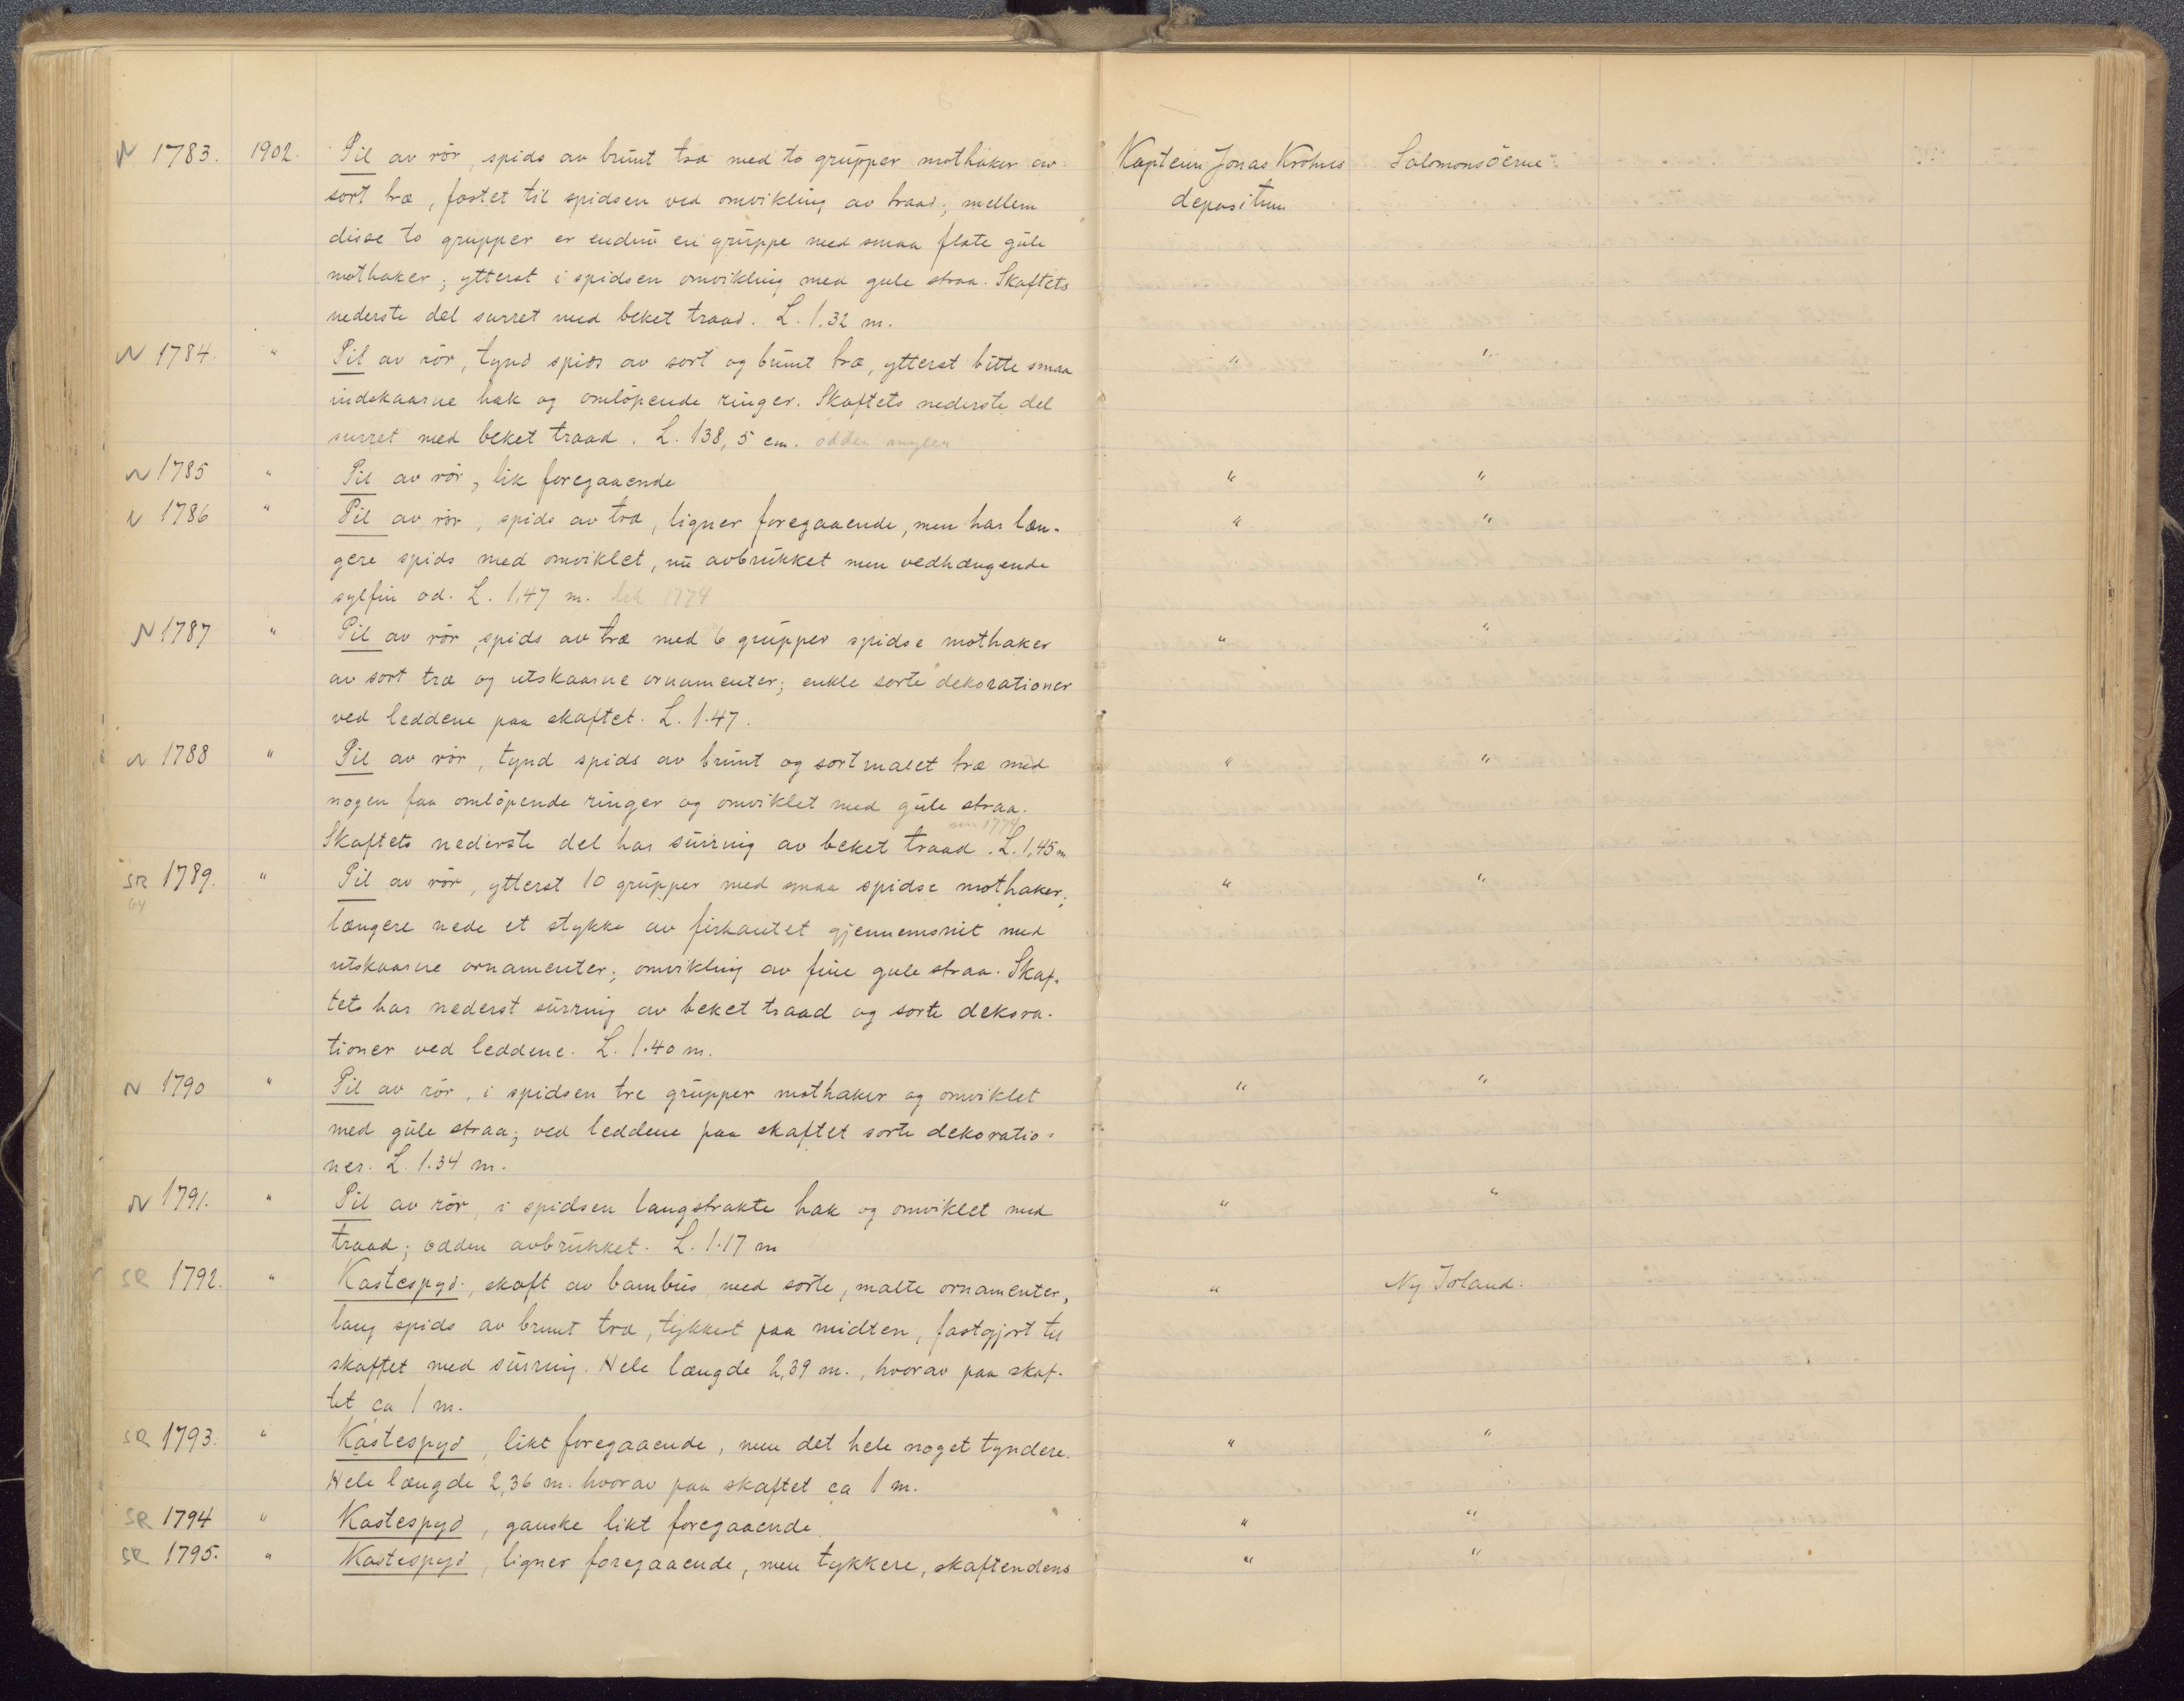 N 1783. 1902. Pil av rör, spids av brunt træ med to grupper mothaker av Kaptein Jonas Krohns Salomonsöerne.
sort træ, fæstet til spidsen ved omvikling av traad; mellem depositum
disse to grupper er endnu en gruppe med smaa flate gule
mothaker; ytterst i spidsen omvikling med gule straa. Skaftets
nederste del surret med beket traad. L. 1.32 m.
N 1784. " Pil av rör, tynd spids av sort og brunt træ, ytterst bitte smaa " "
indskaarne hak og omlöpende ringer. Skaftets nederste del
surret med beket traad. L. 138,5 cm. odden mgler
N 1785 " Pil av rör, lik foregaaende " "
N 1786 " Pil av rör, spids av træ, ligner foregaaende, men har læn- " "
gere spids med omviklet, nu avbrukket men vedhængende
sylfin od. L. 1.47 m. lik 1774
N 1787 " Pil av rör, spids av træ med 6 grupper spidse mothaker " "
av sort træ og utskaarne ornamenter; enkle sorte dekorationer
ved leddene paa skaftet. L. 1.47.
N 1788 " Pil av rör, tynd spids av brunt og sortmalet træ med " "
nogen faa omlöpende ringer og omviklet med gule straa.
som 1774
Skaftets nederste del har surring av beket traad. L. 1,45 m
SR 1789. " Pil av rör, ytterst 10 grupper med smaa spidse mothaker; " "
64
længere nede et stykke av firkantet gjennemsnit med
utskaarne ornamenter; omvikling av fine gule straa. Skaf-
tets har nederst surring av beket traad og sorte dekora-
tioner ved leddene. L. 1.40 m.
N 1790 " Pil av rör, i spidsen tre grupper mothaker og omviklet " "
med gule straa; ved leddene paa skaftet sorte dekoratio-
ner. L. 1.34 m.
N 1791. " Pil av rör, i spidsen langstrakte hak og omviklet med " "
traad; odden avbrukket. L. 1.17 m
SR 1792. " Kastespyd, skaft av bambus med sorte, malte ornamenter, " Ny Irland.
lang spids av brunt træ, tykkest paa midten, fastgjort til
skaftet med surring. Hele længde 2,39 m., hvorav paa skaf-
tet ca 1 m.
SR 1793. " Kastespyd, likt foregaaende, men det hele noget tyndere. " "
Hele længde 2,36 m. hvorav paa skaftet ca 1 m.
SR 1794 " Kastespyd, ganske likt foregaaende. " "
SR 1795. " Kastespyd, ligner foregaaende, men tykkere, skaftendens " "